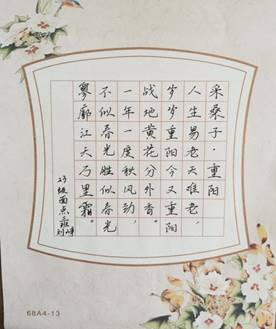 采桑子·重阳
人生易老天难老,
岁岁重阳今又重阳,
战地黄花分外香。
一年一度秋风劲,
不似春光胜似春光
寥廓江天万里霜。
23级面点班
68A4-13